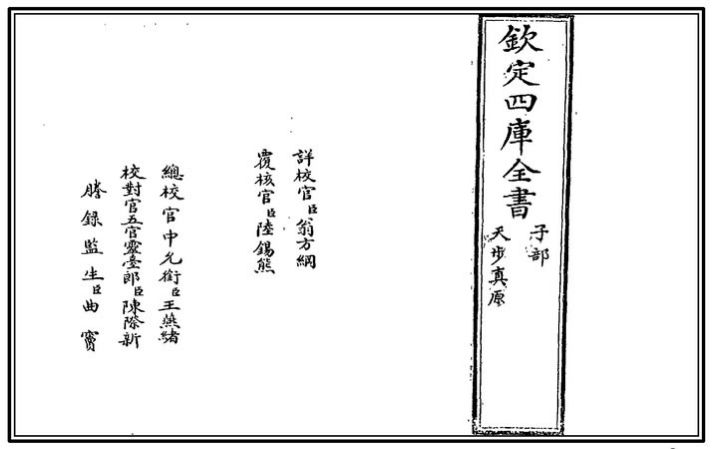 欽定四庫全書
子部
天步真原
詳校官臣翁方綱
覆核官臣陸錫熊
總校官中允銜臣王燕緒
校對官五官靈臺郎臣陳際新
謄錄監生臣曲